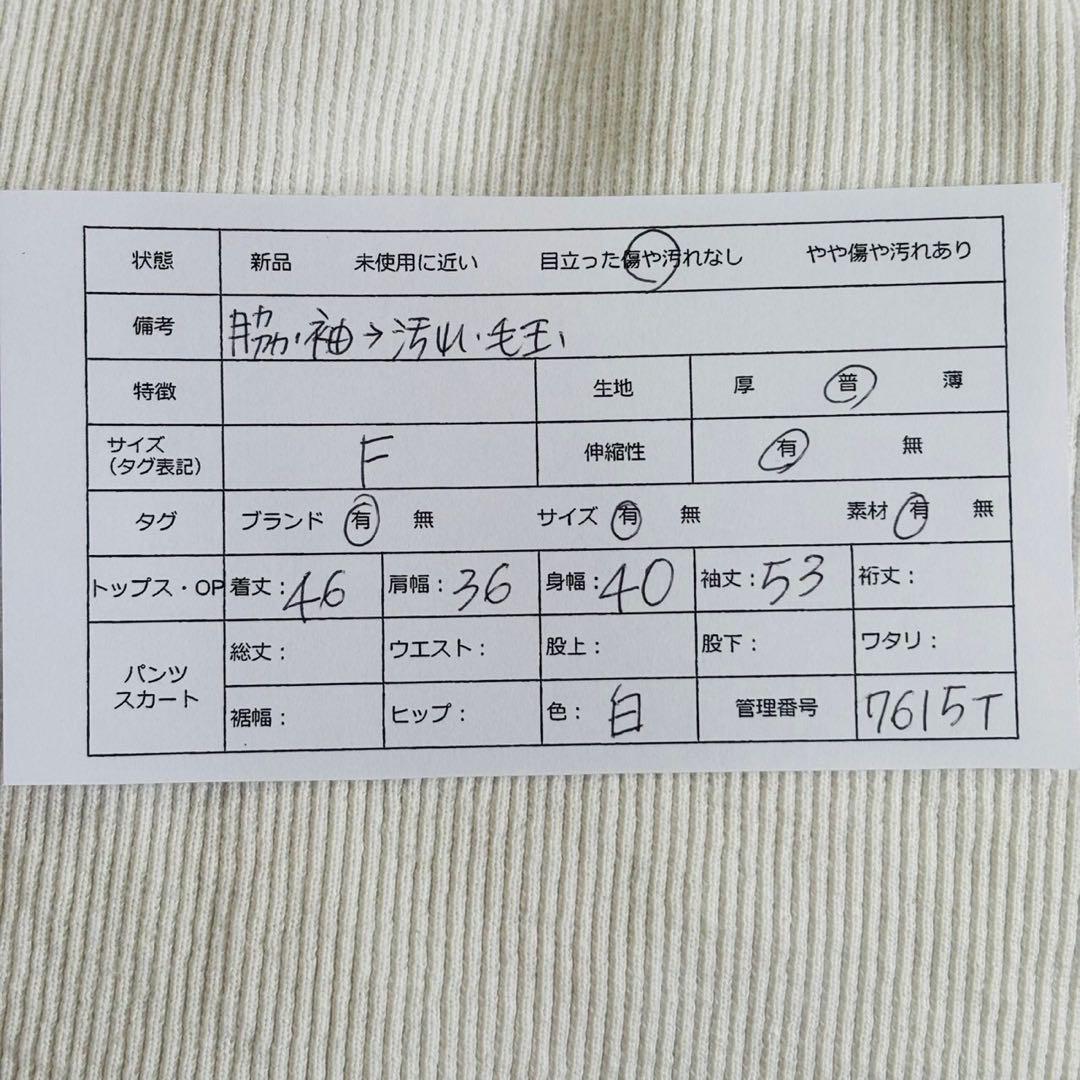 状態 新品 未使用に近い 目立った傷や汚れなし やや傷や汚れあり
備考 脇・袖→汚れ・毛玉、
特徴 生地 厚 普 薄
サイズ
(タグ表記) F 伸縮性 有 無
タグ ブランド 有 無 サイズ 有 無 素材 有 無
トップス・OP 着丈：46 肩幅：36 身幅：40 袖丈：53 裄丈：
パンツ
スカート
総丈： ウエスト： 股上： 股下： ワタリ：
裾幅： ヒップ： 色：白 管理番号 7615T